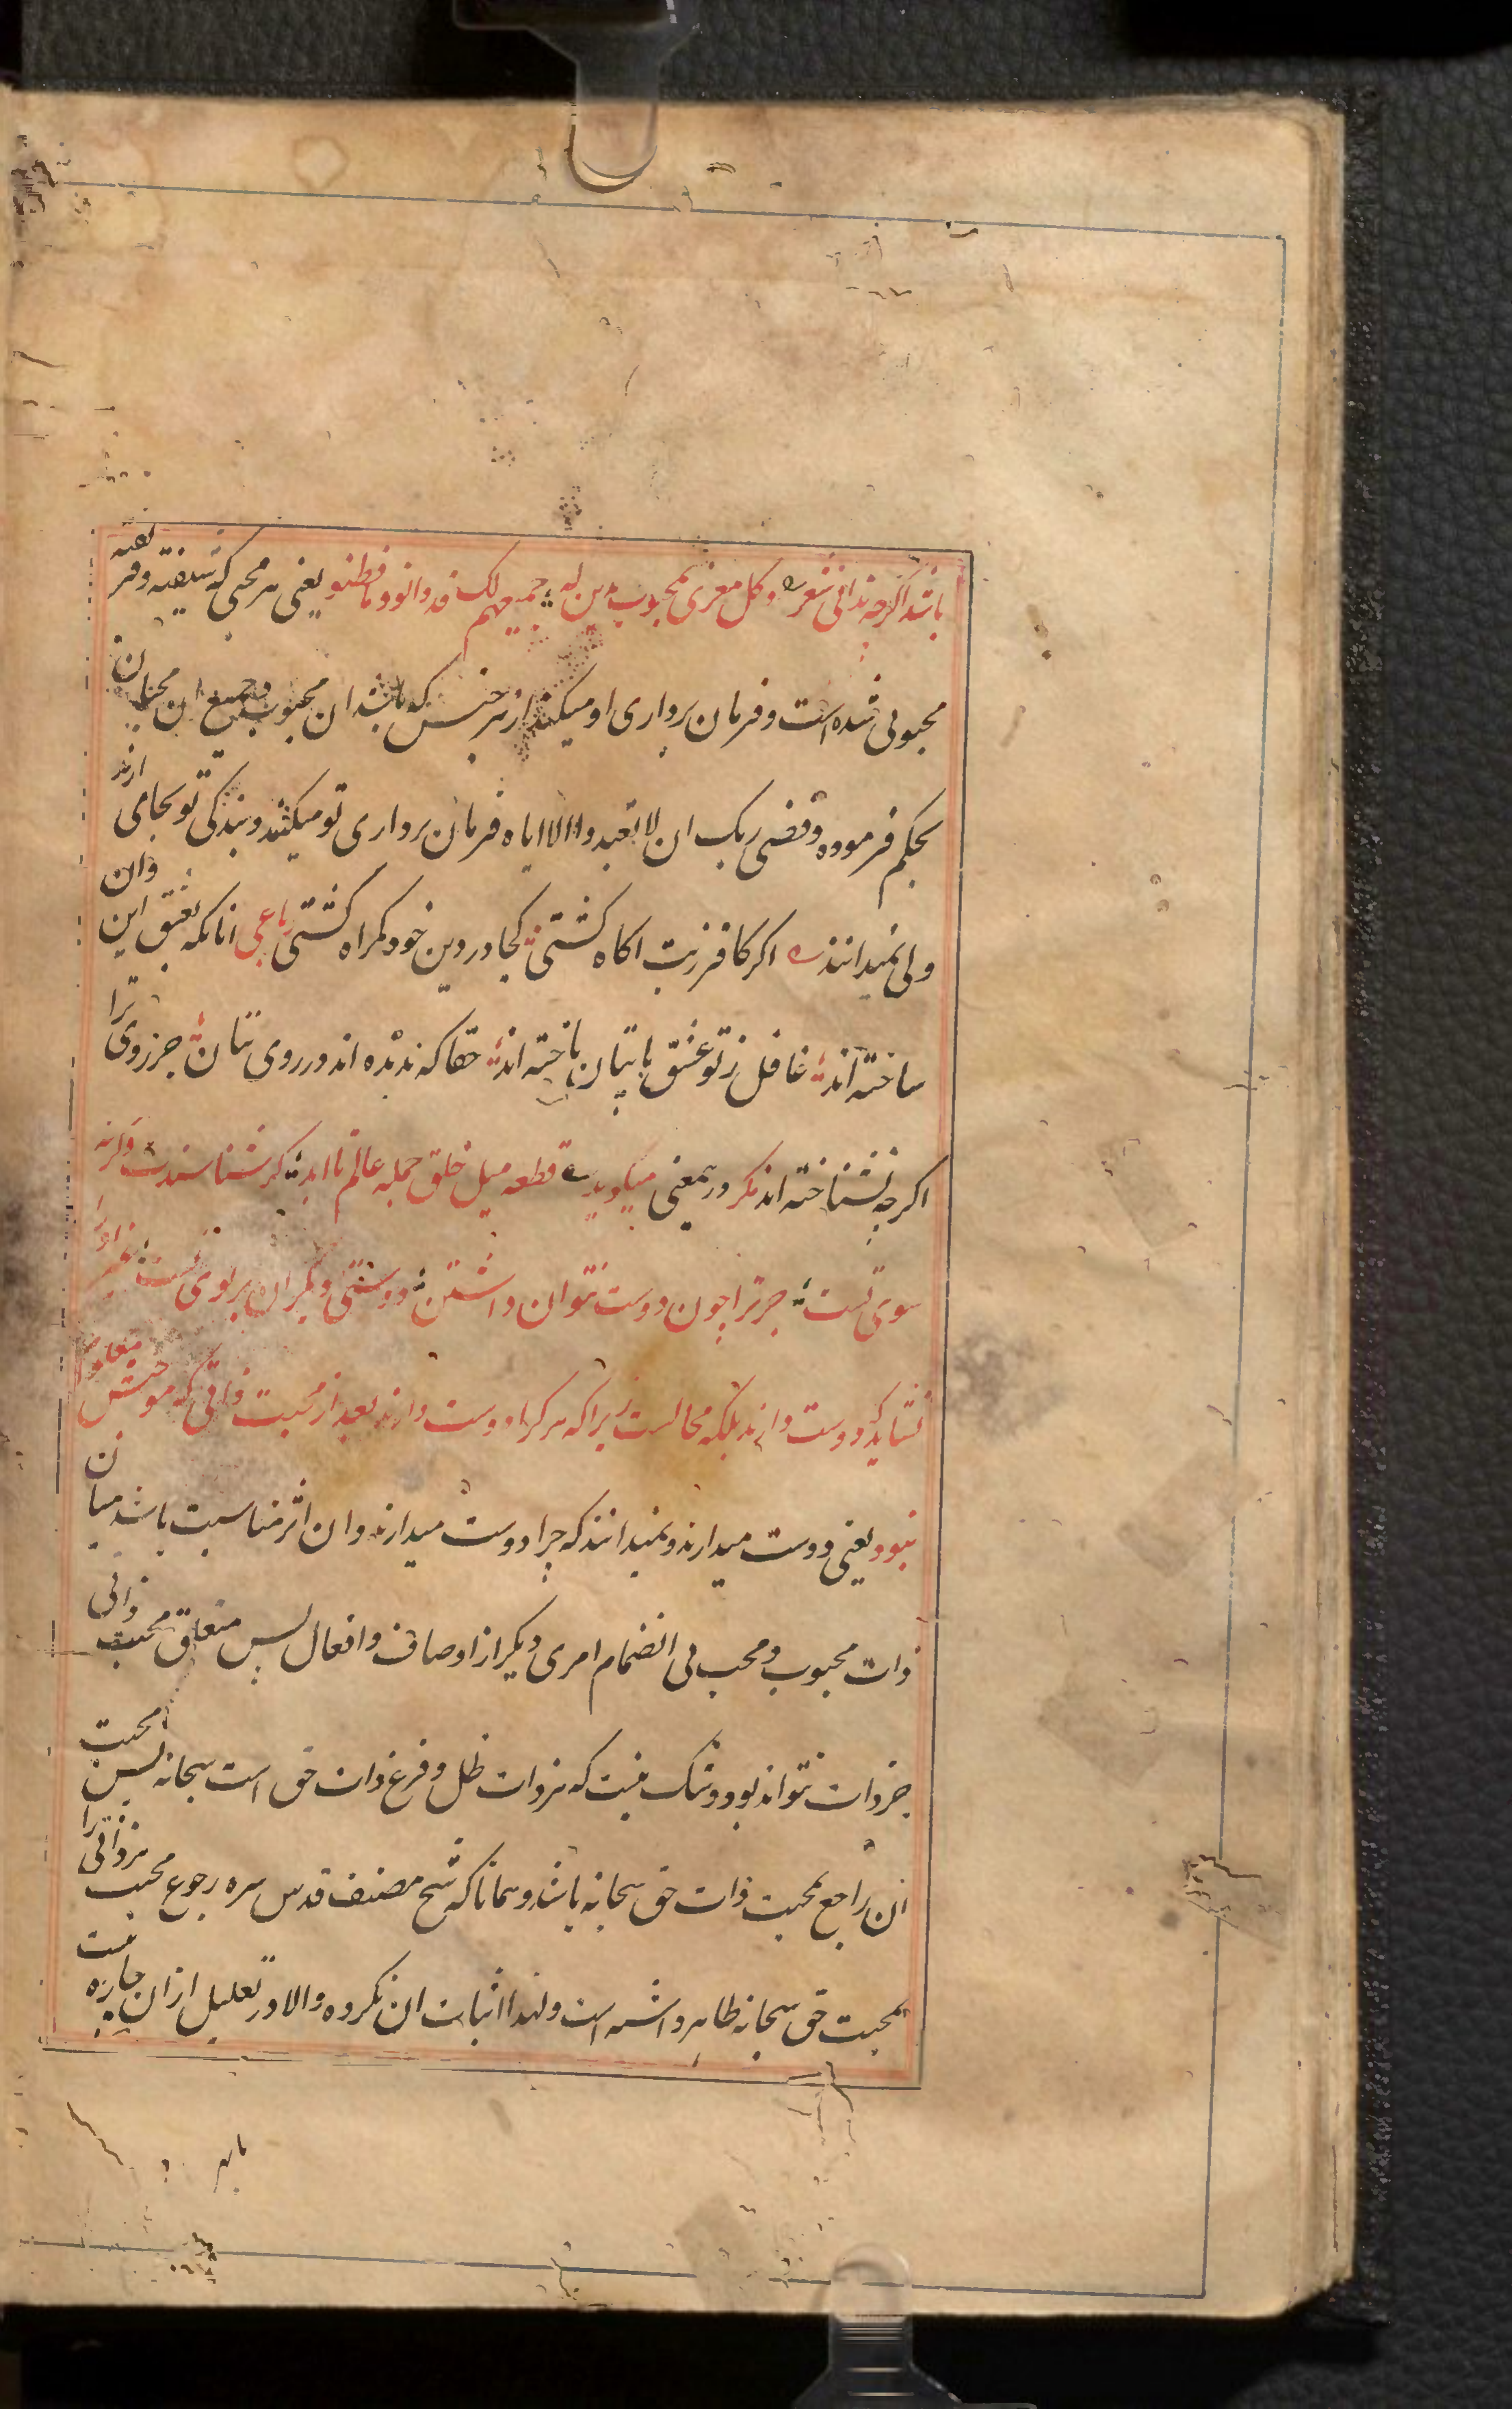 باشد اگرچه ندانی شعر وکل مغری بمحبوب یدین له جمیعهم لک قد دانوا وما فطنوا یعنی هر محبی که شیفته وفریفته
محبوبی شده است وفرمان برداری او میکند از هر جنس که باشد ان محبوب وجمیع ان محبان
بحکم فرموده وقضی ربک ان لا تعبدوا الا ایاه فرمان برداری تو میکنند وبندکی تو بجا می ارند
ولی نمیدانند اکر کافر زبت اکاه کشتی کجا در دین خود کمراه کشتی رباعی انانکه بعشق این وان
ساخته اند غافل ز تو عشق با بتان باخته اند حقا که ندیده اند در روی بتان جز روی ترا
اکرچه نشناخته اند مکر در یمعنی میکوید قطعه میل خلق جمله عالم تا ابد کر شناسندت وکرنه
سوی تست جز ترا چون دوست نتوان داشتن دوستی دیکران بر بوی تست غیر اورا
نشاید که دوست دارند بلکه محالست زیرا که هر کرا دوست دارند بعد از محبت ذاتی که موجبش معلوم
نبود یعنی دوست میدارند ونمیدانند که چرا دوست میدارند وان اثر مناسبت باشد میان
ذات محبوب ومحب بی انضمام امری دیکر از اوصاف وافعال پس متعلق محبت ذاتی
جز ذات نتواند بود وشک نیست که هر ذات ظل وفرع ذات حق است سبحانه پس محبت
ان راجع بمحبت ذات حق سبحانه باشد وهمانا که شیخ مصنف قدس سره رجوع محبت ذاتی را
بمحبت حق سبحانه ظاهر داشته است ولهذا اثبات ان نکرده والا در تعلیل ازان چاره نیست